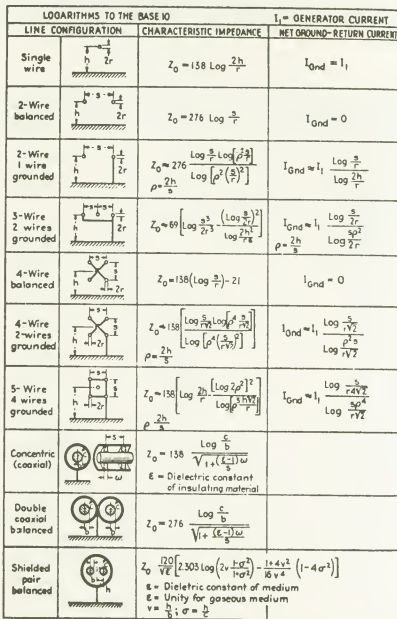 LOGARITHMS TO THE BASE 10
I₁ = GENERATOR CURRENT
LINE CONFIGURATION CHARACTERISTIC IMPEDANCE NET GROUND-RETURN CURRENT
Single wire h 2r Z₀ = 138 Log 2h/r I_Gnd = I₁
2-Wire balanced s h 2r Z₀ = 276 Log s/r I_Gnd = 0
2-Wire 1 wire grounded s h 2r
Z₀ ≈ 276 Log s/r Log[ρ² s/r] / Log[ρ² (s/r)²]
ρ = 2h/s
I_Gnd ≈ I₁ Log s/r / Log 2h/r
3-Wire 2 wires grounded s s h 2r
Z₀ ≈ 69 [Log s³/2r³ - (Log s/2r)² / Log 2h²/rs]
I_Gnd ≈ I₁ Log s/2r / Log sρ²/2r
ρ = 2h/s
4-Wire balanced h s 2r Z₀ = 138 (Log s/r) - 21 I_Gnd = 0
4-Wire 2-wires grounded h s 2r
Z₀ ≈ 138 [Log s/r√2 Log[ρ⁴ s/r√2] / Log[ρ⁴ (s/r√2)²]]
ρ = 2h/s
I_Gnd ≈ I₁ Log s/r√2 / Log ρ² s/r√2
5-Wire 4 wires grounded s h s 2r
Z₀ ≈ 138 [Log 2h/r - [Log 2ρ²]² / Log[ρ³ h√2/r]]
ρ 2h/s
I_Gnd ≈ I₁ Log s/r4√2 / Log sρ⁴/r√2
Concentric (coaxial) s ω
Z₀ = 138 Log c/b / √1+(ε-1)ω/s
ε = Dielectric constant
of insulating material
Double coaxial balanced
Z₀ = 276 Log c/b / √1+(ε-1)ω/s
Shielded pair balanced h
Z₀ 120/√ε [2.303 Log (2v 1-σ²/1+σ²) - 1+4v²/16v⁴ (1-4σ²)]
ε = Dieletric constant of medium
ε = Unity for gaseous medium
v = h/b; σ = h/c